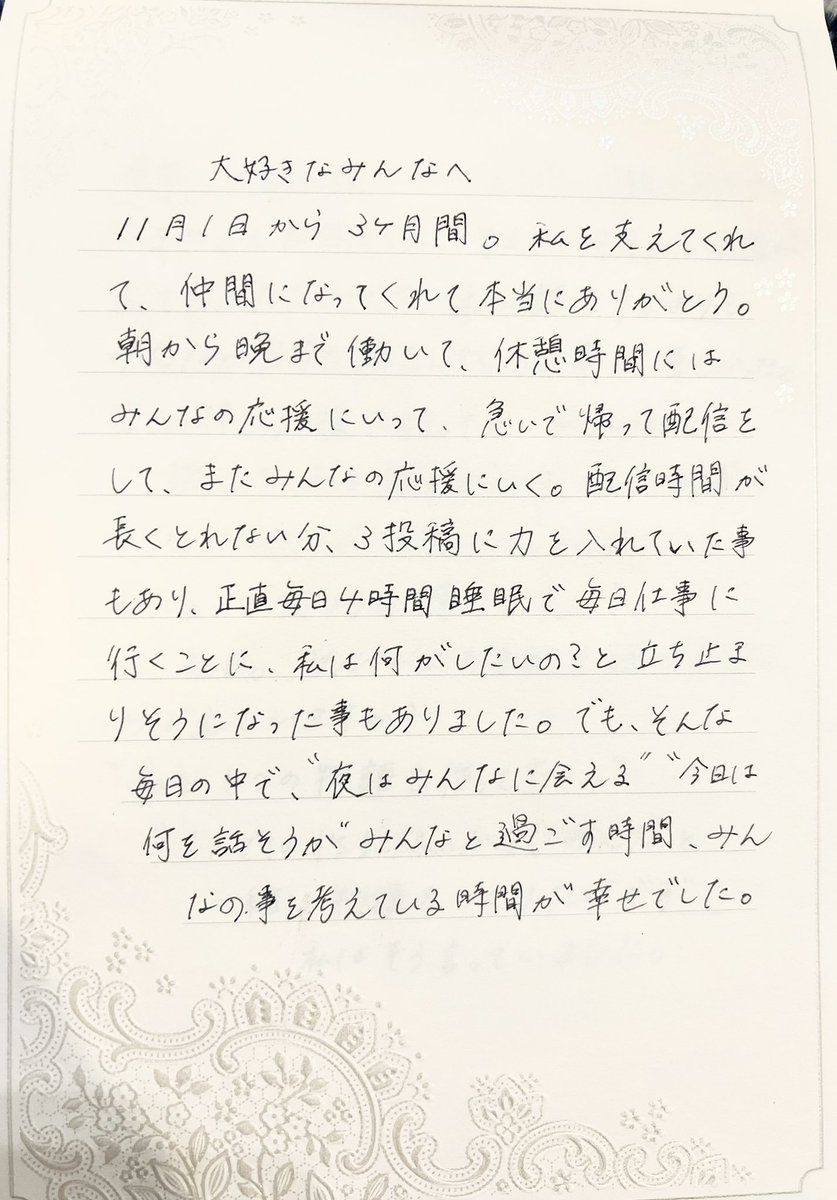 大好きなみんなへ
11月1日から3ヶ月間。私を支えてくれ
て、仲間になってくれて本当にありがとう。
朝から晩まで働いて、休憩時間には
みんなの応援にいって、急いで帰って配信を
して、またみんなの応援にいく。配信時間が
長くとれない分、3投稿に力を入れていた事
もあり、正直毎日4時間睡眠で毎日仕事に
行くことに、私は何がしたいの?と立ち止ま
りそうになった事もありました。でも、そんな
毎日の中で、"夜はみんなに会える" "今日は
何を話そうか"みんなと過ごす時間、みん
なの事を考えている時間が幸せでした。